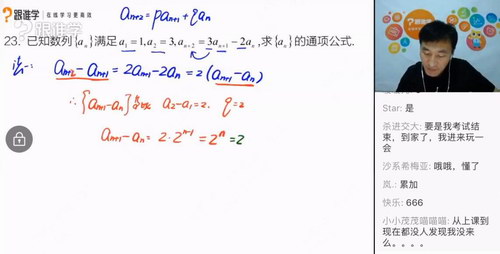 跟谁学 | 在线学习更高效
aₙ₊₂ = paₙ₊₁ + qaₙ
跟谁学
23. 已知数列{aₙ}满足a₁ = 1, a₂ = 3, aₙ₊₂ = 3aₙ₊₁ − 2aₙ, 求{aₙ}的通项公式.
法一: aₙ₊₂ − aₙ₊₁ = 2aₙ₊₁ − 2aₙ = 2(aₙ₊₁ − aₙ)
∴ {aₙ₊₁ − aₙ} 是 a₂ − a₁ = 2. q = 2
aₙ₊₁ − aₙ = 2 · 2ⁿ⁻¹ = 2ⁿ = 2
Star: 是
杀进交大: 要是我考试结
束，到家了，我进来玩一
会
沙系希梅亚: 哦哦，懂了
岚.: 累加
快乐: 666
小小茂茂喵喵喵: 从上课到
现在都没人发现我没来
么。。。。